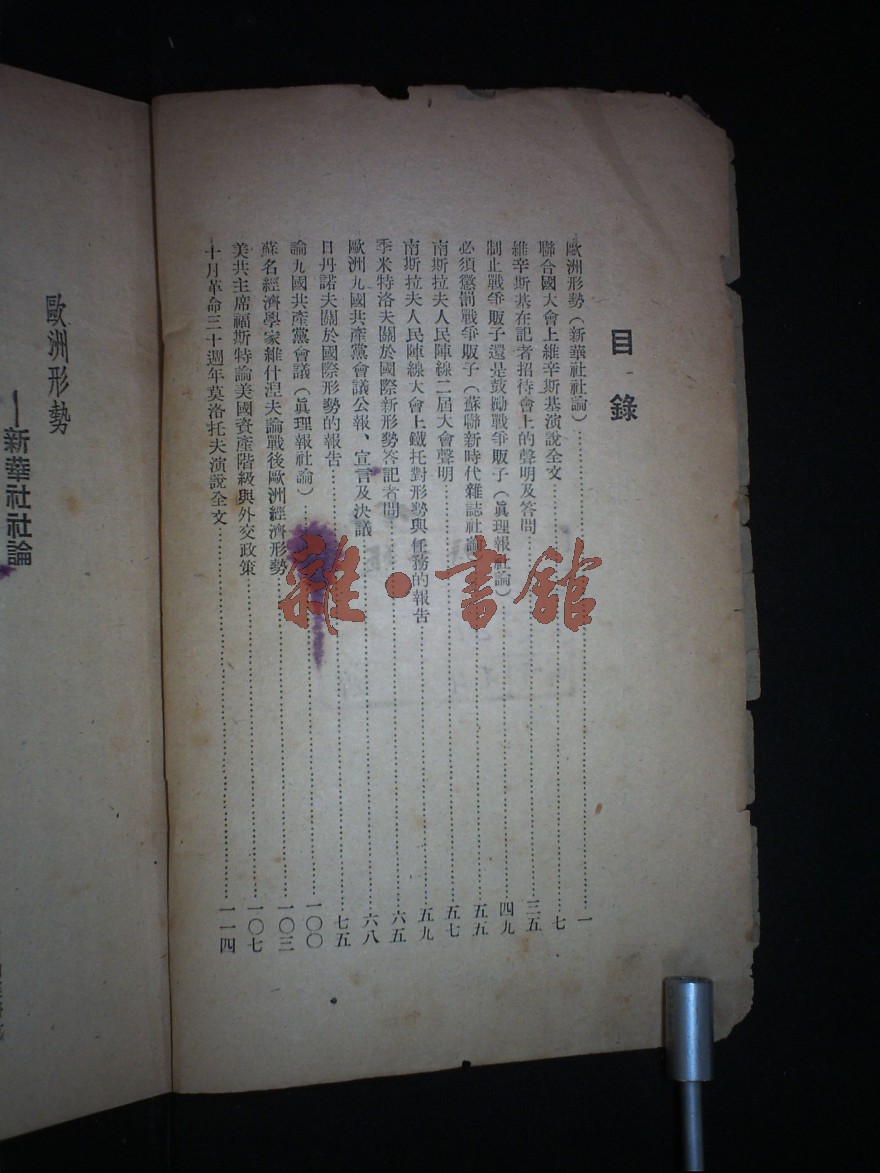 目錄
歐洲形勢（新華社社論）……一
聯合國大會上維辛斯基演說全文……七
維辛斯基在記者招待會上的聲明及答問……三五
制止戰爭販子還是鼓勵戰爭販子（眞理報社論）……四九
必須懲罰戰爭販子（蘇聯新時代雜誌社論）……五五
南斯拉夫人民陣線二屆大會聲明……五七
南斯拉夫人民陣線大會上鐵托對形勢與任務的報告……五九
季米特洛夫關於國際新形勢答記者問……六五
歐洲九國共產黨會議公報、宣言及決議……六八
日丹諾夫關於國際形勢的報告……七五
論九國共產黨會議（眞理報社論）……一〇〇
蘇名經濟學家維什涅夫論戰後歐洲經濟形勢……一〇三
美共主席福斯特論美國資產階級與外交政策……一〇七
十月革命三十週年莫洛托夫演說全文……一一四
歐洲形勢
—新華社社論
雜·書館